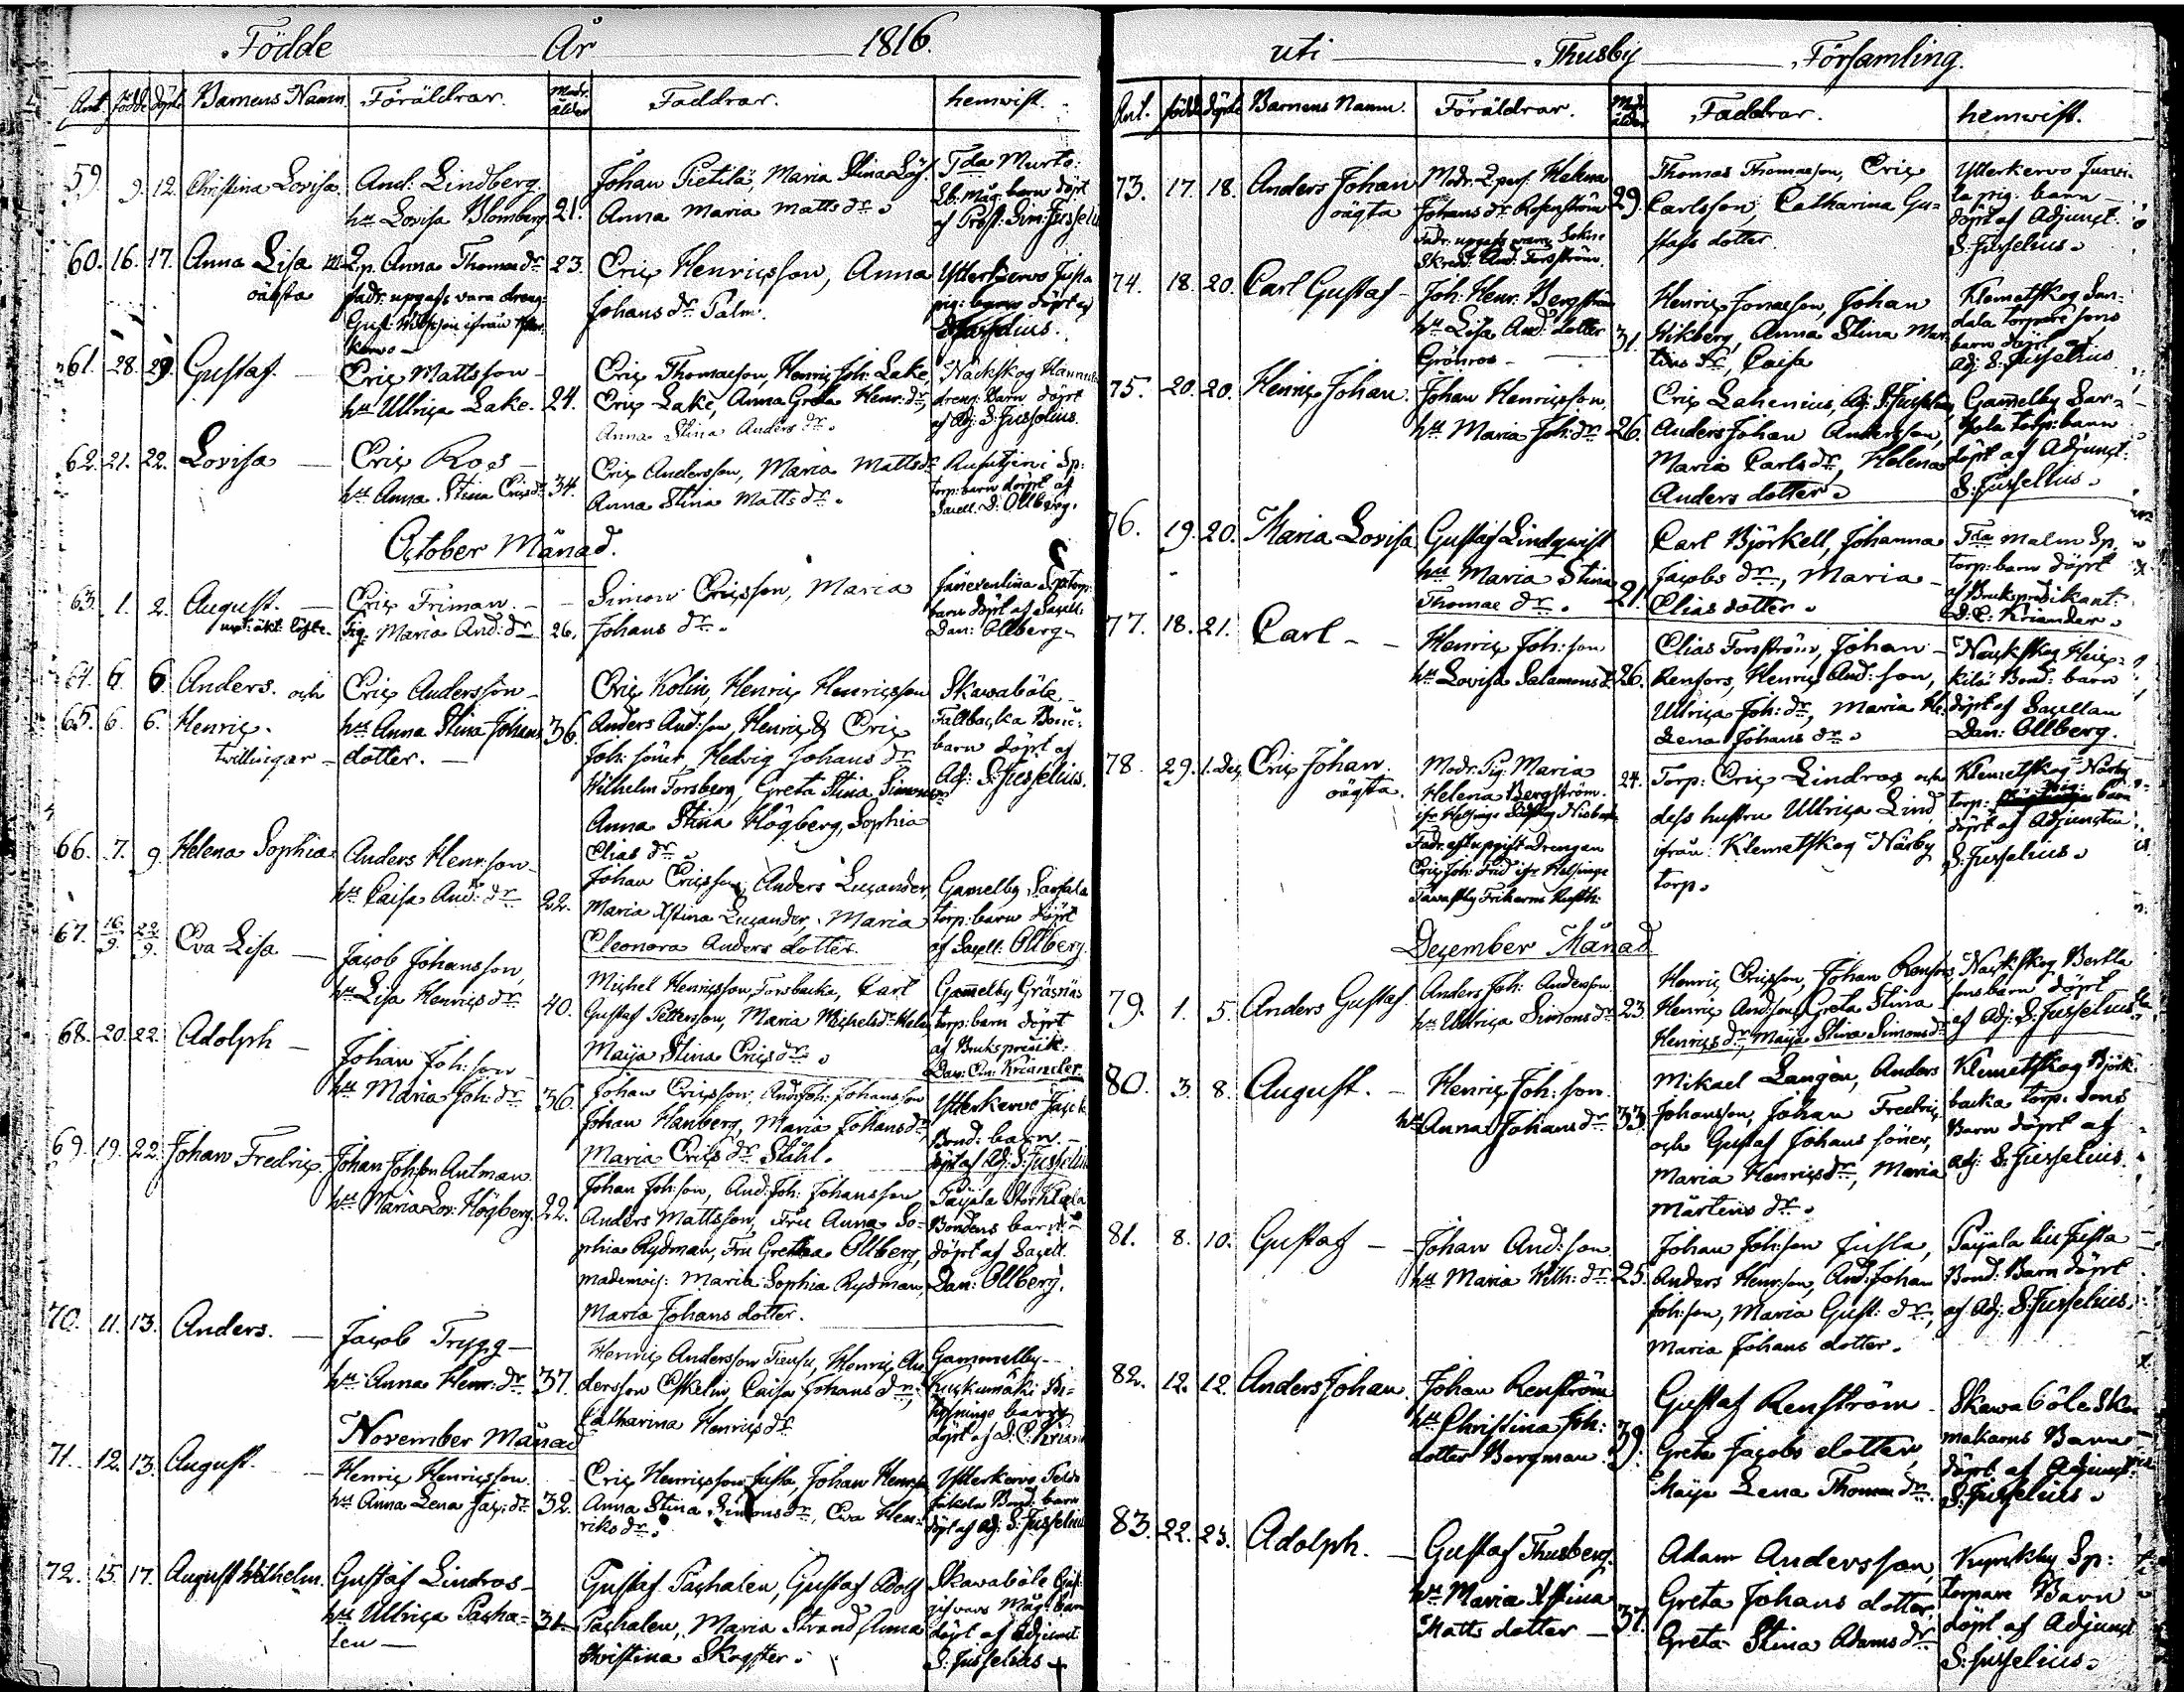 Födde År 1816.
Ant. Födde döpte Barnens Namn Föräldrar. Modr. ålder Faddrar. hemwist.
59. 9. 12. Christina Lovisa And: Lindberg. hu Lovisa Blomberg 21.
Johan Pietilä, Maria Stina Löf.
Anna Maria Matts dr.
60. 16. 17. Anna Lisa oäkta
Qp. Anna Thomae dr 23.
fadr. upgafs vara dreng:
Eric Henricsson, Anna
Johans dr Palm.
Ytterkervo Jussila
61. 28. 29. Gustaf.
Eric Mattsson
hu Ullrica Lake. 24.
Eric Thomasson, Henric Joh: Lake,
Eric Lake, Anna Greta Henr: dr,
Anna Stina Anders dr.
dreng: Barn döpt
af Adj: S: Jusselius.
62. 21. 22. Lovisa
Eric Ros
hu Anna Stina Erics dr 34.
Eric Andersson, Maria Matts dr
Anna Stina Matts dr.
Rusutjervi Sp:
torp: barn döpt af
Sacell. D: Ollberg.
October Månad.
63. 1. 2. August.
Eric Friman.
Pig. Maria And: dr 26.
Simon Ericsson, Maria
Johans dr.
barn döpt af Sacell:
Dan: Ollberg
64. 6. 6. Anders. och
65. 6. 6. Henric.
twillingar
Eric Andersson
hu Anna Stina Johans 36.
dotter.
Eric Kolin, Henric Henricsson
Anders And:son, Henric & Eric
Joh: söner, Hedvig Johans dr
Wilhelm Forsberg, Greta Stina Simons dr
Anna Stina Högberg, Sophia
Elias dr.
Skawaböle
Fallbacka Bond:
barn döpt af
Adj: S: Jusselius.
66. 7. 9. Helena Sophia
Anders Henr:son
hu Caisa And: dr 22.
Johan Ericsson, Anders Lucander,
Maria Xstina Lucander, Maria
Eleonora Anders dotter.
Gamelby Sarsala
torp: barn döpt
af Sacell: Ollberg
67. 16/9. 22/9. Eva Lisa
Jacob Johansson,
hu Lisa Henrics dr 40.
Michel Henricsson Forsbacka, Carl
Gustaf Pettersson, Maria Michels dr
Maija Stina Erics dr.
Gamelby Gräsnäs
torp: barn döpt
af Brukspredik:
68. 20. 22. Adolph
Johan Joh:son
hu Maria Joh: dr 36.
Johan Ericsson, And: Joh: Johansson
Johan Hanberg, Maria Johans dr,
Maria Erics dr Stähl.
Bond: barn.
döpt af Adj: S: Jusselius
69. 19. 22. Johan Fredric
Johan Johsson Antman.
hu Maria Lov: Högberg. 22.
Johan Joh:son, And: Joh: Johansson
Anders Mattsson, Fru Anna So=
phia Rydman, Fru Gretha Ollberg,
mademois: Maria Sophia Rydman,
Maria Johans dotter.
Bondens barn
döpt af Sacell.
Dan: Ollberg.
70. 11. 13. Anders.
Jacob Trygg
hu Anna Henr: dr 37.
Henric Andersson, Henric An
dersson Eskelin, Caisa Johans dr,
Catharina Henrics dr
Gammelby
November Månad
71. 12. 13. August.
Henric Henricsson.
hu Anna Lena Jac: dr 32.
Eric Henricsson Jussila, Johan Henr:son
Anna Stina Simons dr, Eva Hen=
riks dr.
Ytterkervo
Bond: barn
döpt af Adj: S: Jusselius
72. 15. 17. August Wilhelm.
Gustaf Lindros
hu Ullrica Pacha= 31.
len
Gustaf Pachalen, Gustaf Adolf
Pachalen, Maria Strand, Anna
Christina Skogster.
Skawaböle
döpt af Adjunct
S: Jusselius
uti Thusby Församling.
Ant. födde döpte Barnens Namn. Föräldrar. Modr. ålder Faddrar. hemwist.
73. 17. 18. Anders Johan
oägta
Modr. Qpers. Helena
Johans dr Rosenström 29.
Skredd: And: Forsström.
Thomas Thomasson, Eric
Carlsson, Catharina Gu=
stafs dotter.
döpt af Adjunct.
S: Jusselius.
74. 18. 20. Carl Gustaf
Joh: Henr: Bergström
hu Lisa And: dotter 31.
Grönros
Henric Jonasson, Johan
Wikberg, Anna Stina Mår
tens dr, Caisa
Klemetskog San=
dala torpare sons
barn döpt
adj S: Jusselius
75. 20. 20. Henric Johan.
Johan Henricsson,
hu Maria Joh: dr 26.
Eric Lahenius, Adj: S: Jusselius,
Anders Johan Andersson,
Maria Carls dr, Helena
Anders dotter.
Gamelby Sar=
sala torp: barn
döpt af Adjunct:
S: Jusselius.
76. 19. 20. Maria Lovisa
Gustaf Lindqwist
hu Maria Stina
Thomae dr. 21.
Carl Björkell, Johanna
Jacobs dr, Maria
Elias dotter.
Tda malm Sp.
torp: barn döpt
af Brukspredikant:
D: E: Kriander.
77. 18. 21. Carl
Henric Joh:son
hu Lovisa Salamons dr 26.
Elias Forsström, Johan
Renfors, Henric And:son,
Ullrica Joh: dr, Maria He=
lena Johans dr.
Nackskog Heic=
kilä Bond: barn
döpt af Sacellan
Dan: Ollberg.
78. 29. 1. Dec. Eric Johan.
oägta.
Modr: Pig. Maria 24.
Helena Bergström.
Fadr. efter upgift Drengen
Eric Joh: Frid ifr Helsinge
Torp: Eric Lindros och
dess hustru Ullrica Lind
ifrån: Klemetskog Närby
torp.
Klemetskog Närby
torp: pig: barn
döpt af Adjuncten
S: Jusselius.
December Månad
79. 1. 5. Anders Gustaf.
Anders Joh: Andersson.
hu Ullrica Simons dr 23.
Henric Ericsson, Johan Renfors
Henric And:son, Greta Stina
Henrics dr, Maija Stina Simons dr
Nackskog Bertla
sons barn döpt
af Adj: S: Jusselius
80. 3. 8. August.
Henric Joh:son.
hu Anna Johans dr 33.
Mikael Langen, Anders
Johansson, Johan Fredric
och Gustaf Johans söner,
Maria Henrics dr, Maria
Mårtens dr.
Klemetskog Björk
backa torp: sons
Barn döpt af
adj: S: Jusselius.
81. 8. 10. Gustaf
Johan And:son.
hu Maria Wilh: dr 25.
Johan Joh:son Jussla,
Anders Henr:son, And: Johan
Joh:son, Maria Gust: dr,
Maria Johans dotter.
Paijala
Bond: Barn döpt
af Adj: S: Jusselius.
82. 12. 12. Anders Johan.
Johan Renström
hu Christina Joh:
dotter Bergman 39.
Gustaf Renström
Greta Jacobs dotter
Maija Lena Thomae dr.
Skawaböle Sko
makarns Barn
döpt af Adjunct:
S: Jusselius.
83. 22. 23. Adolph.
Gustaf Thusberg.
hu Maria Xstina
Matts dotter 37.
Adam Andersson
Greta Johans dotter,
Greta Stina Adams dr
torpare Barn
döpt af Adjunct
S: Jusselius.